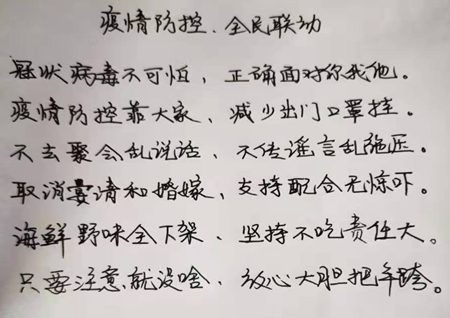 疫情防控、全民联动
冠状病毒不可怕，正确面对你我他。
疫情防控靠大家，减少出门口罩挂。
不去聚会乱说话，不传谣言乱施压。
取消宴请和婚嫁，支持配合无惊吓。
海鲜野味全下架、坚持不吃责任大。
只要注意就没啥、放心大胆把年跨。